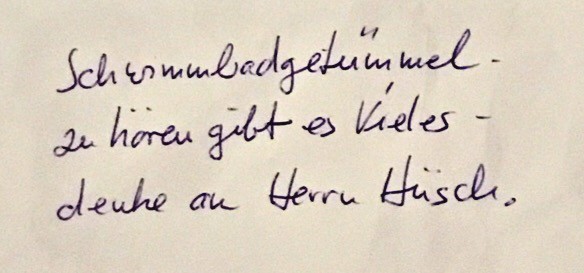 Schwimmbadgetümmel -
zu hören gibt es Vieles -
denke an Herrn Hüsch.